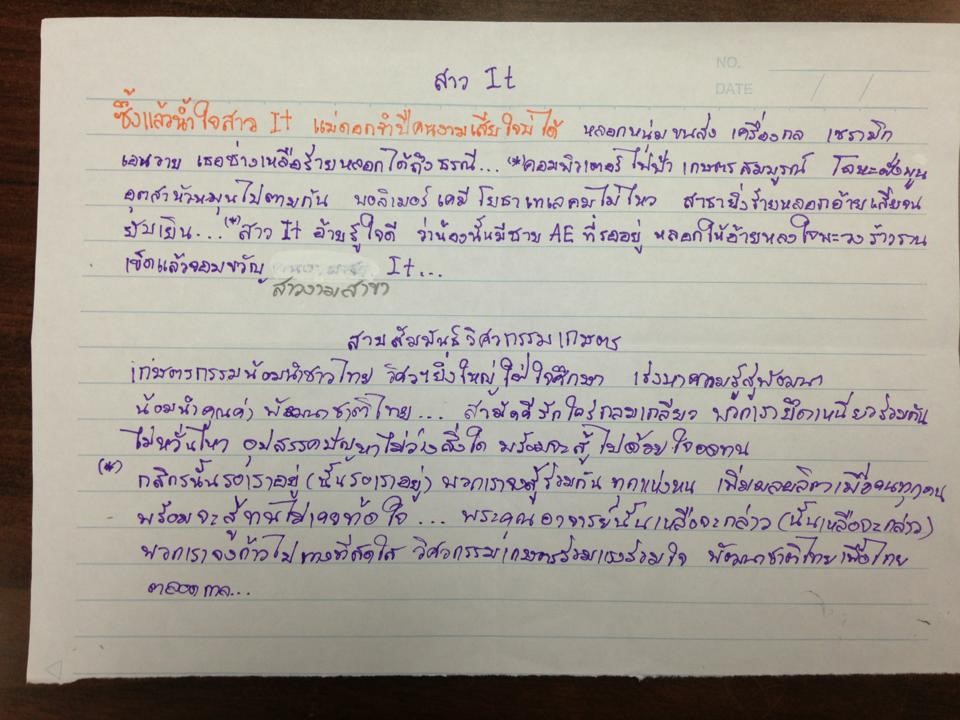 NO.
DATE / /
สาว It
ซึ้งแล้วน้ำใจสาว It แม่ดอกจำปีคนงามเสียใจบ่ได้ หลอกหนุ่มขนส่ง เครื่องกล เซรามิก
เธอช่างเหลือร้ายหลอกได้ถึงธรณี... (*) คอมพิวเตอร์ ไฟฟ้า เกษตรสมบูรณ์ โลหะ
อุตสาห์หมุนไปตามกัน พอลิเมอร์ เคมี โยธา เทเลคมไม่ไหว สาธายิ่งร้ายหลอกอ้ายเสียจน
ยับเยิน... (*) สาว It อ้ายรู้ใจดี ว่าน้องนั้นมีชาย AE ที่รออยู่ หลอกให้อ้ายหลงใจพะวงร้าวราน
เข็ดแล้วจอมขวัญ It...
สาวงามสาขา
สายสัมพันธ์วิศวกรรมเกษตร
เกษตรกรรมน้อมนำชาวไทย วิศวฯยิ่งใหญ่ ใฝ่ใจศึกษา เร่งหาความรู้สู่พัฒนา
น้อมนำคุณค่า พัฒนาชาติไทย... สามัคคีรักใคร่กลมเกลียว พวกเรายึดเหนี่ยวร่วมกัน
ไม่หวั่นไหว อุปสรรคปัญหาไม่ว่าสิ่งใด พร้อมจะสู้ ไปด้วยใจอดทน
(*) กสิกรนั้นรอเราอยู่ (นั้นรอเราอยู่) พวกเราจงสู้ร่วมกัน ทุกแห่งหน เพิ่มผลผลิตเพื่อจนทุกคน
พร้อมจะสู้ทนไม่เคยท้อใจ... พระคุณอาจารย์นั้นเหลือจะกล่าว (นั้นเหลือจะกล่าว)
พวกเราจงก้าวไปทางที่สดใส วิศวกรรมเกษตรร่วมแรงร่วมใจ พัฒนาชาติไทยเพื่อไทย
ตลอดกาล...